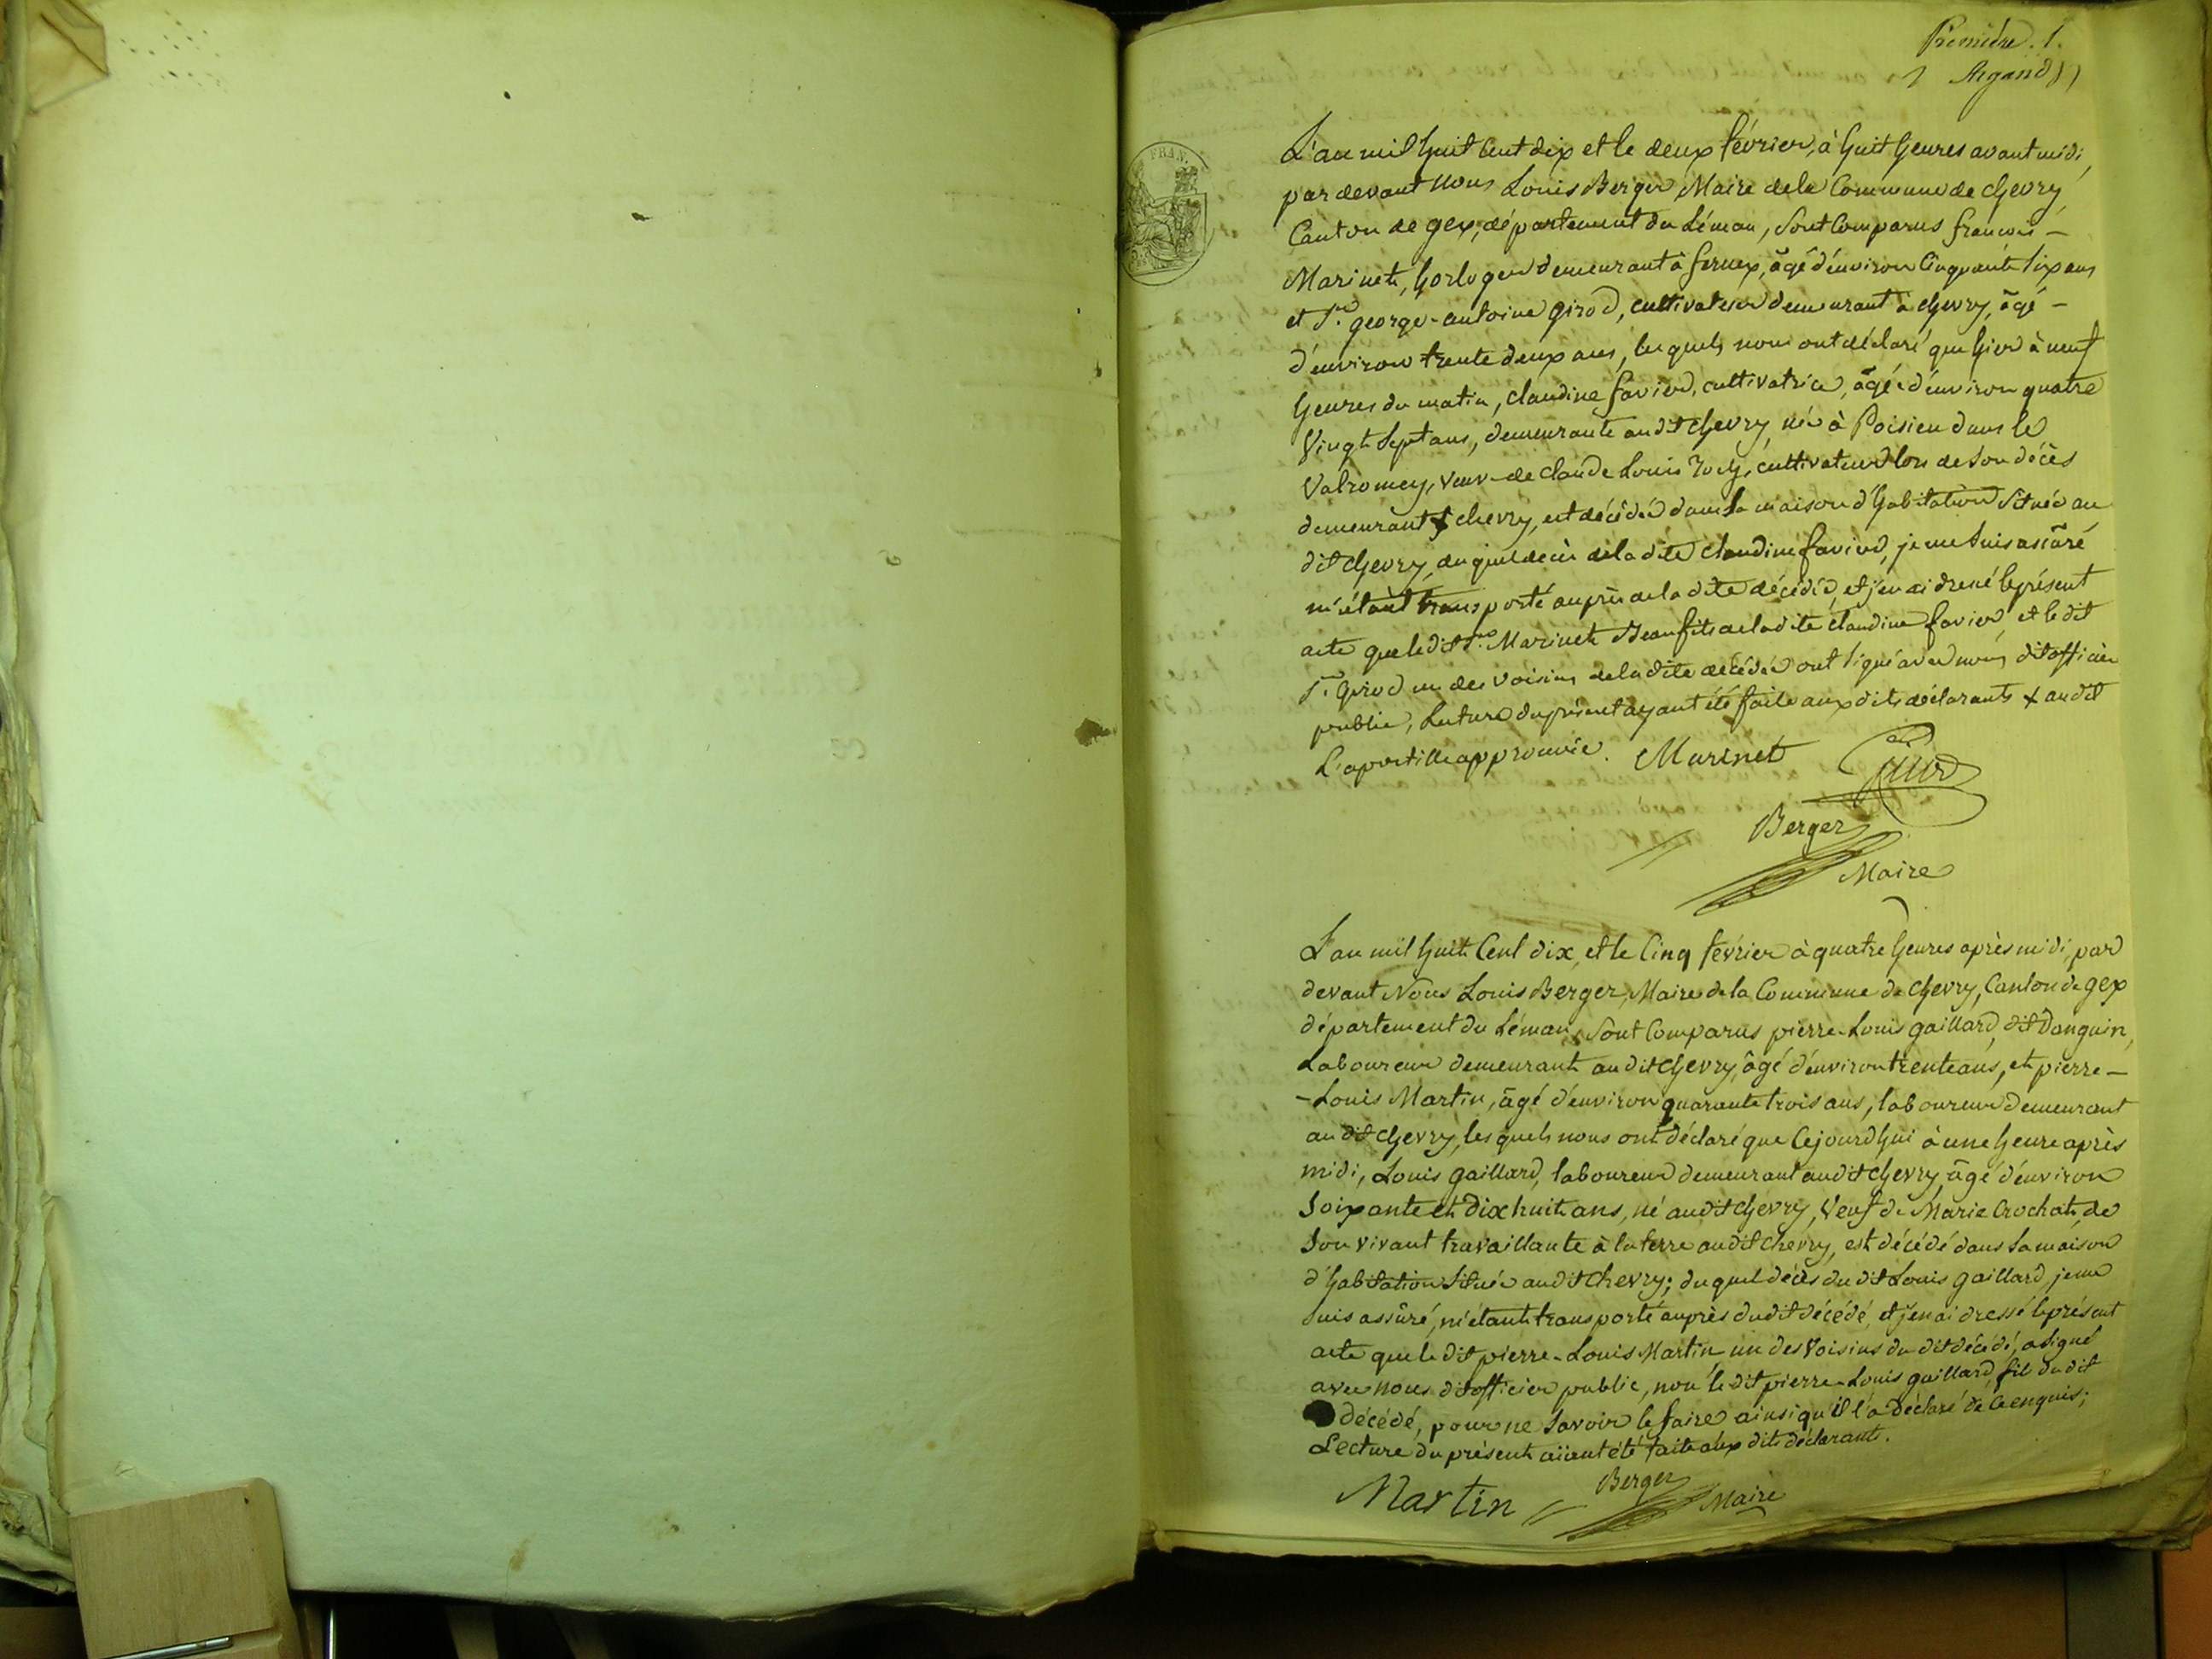 Première. 1.
Argand
FRAN.
L'an mil huit Cent dix et le deux février, à huit heures avant midi,
par devant nous Louis Berger Maire de la Commune de chevry
Canton de gex, département du Léman, sont Comparus françois -
Marinet, horloger demeurant à fernex, âgé d'environ Cinquante six ans
et Sr. george-antoine girod, cultivateur demeurant à chevry, âgé -
d'environ trente deux ans, lesquels nous ont déclaré que hier à neuf
heures du matin, claudine favier, cultivatrice, âgée d'environ quatre
Vingt Sept ans, demeurante audit chevry, née à Poisieu dans le
Valromey, veuve de claude Louis, cultivateur lors de son décès
demeurant x chevry, est décédée dans sa maison d'habitation située au
dit chevry, duquel décès de la dite claudine favier, je me suis assuré
m'étant transporté auprès de la dite décédée, et j'en ai dressé le présent
acte que le dit Sr. Marinet Beaufils de la dite claudine favier, et le dit
Sr. girod un des voisins de la dite décédée ont signé avec nous dit officier
public, Lecture du présent ayant été faite aux dits déclarants x audit
L'apostille approuvée. Marinet
Berger
Maire
L'an mil huit Cent dix, et le Cinq février à quatre heures après midi, par
devant Nous Louis Berger, Maire de la Commune de chevry, Canton de gex
département du Léman, Sont Comparus pierre-Louis gaillard, dit Danguin,
Laboureur demeurant au dit chevry, âgé d'environ trente ans, et pierre -
- Louis Martin, âgé d'environ quarante trois ans, laboureur demeurant
au dit chevry, lesquels nous ont déclaré que Cejourdhui à une heure après
midi, Louis gaillard, laboureur demeurant audit chevry, âgé d'environ
Soixante et Dix huit ans, né audit chevry, Veuf de Marie Crochat, de
Son vivant travaillante à la terre audit chevry, est décédé dans sa maison
d'habitation située audit Chevry; duquel décès du dit Louis gaillard, je me
suis assuré, m'étant transporté auprès du dit décédé, et j'en ai dressé le présent
acte que le dit pierre-Louis Martin un des Voisins du dit décédé, a signé
avec nous dit officier public, non le dit pierre-Louis gaillard, fils du dit
décédé, pour ne savoir le faire ainsi qu'il l'a déclaré de Ce enquis;
Lecture du présent aïant été faite aux dits déclarants.
Martin Berger Maire